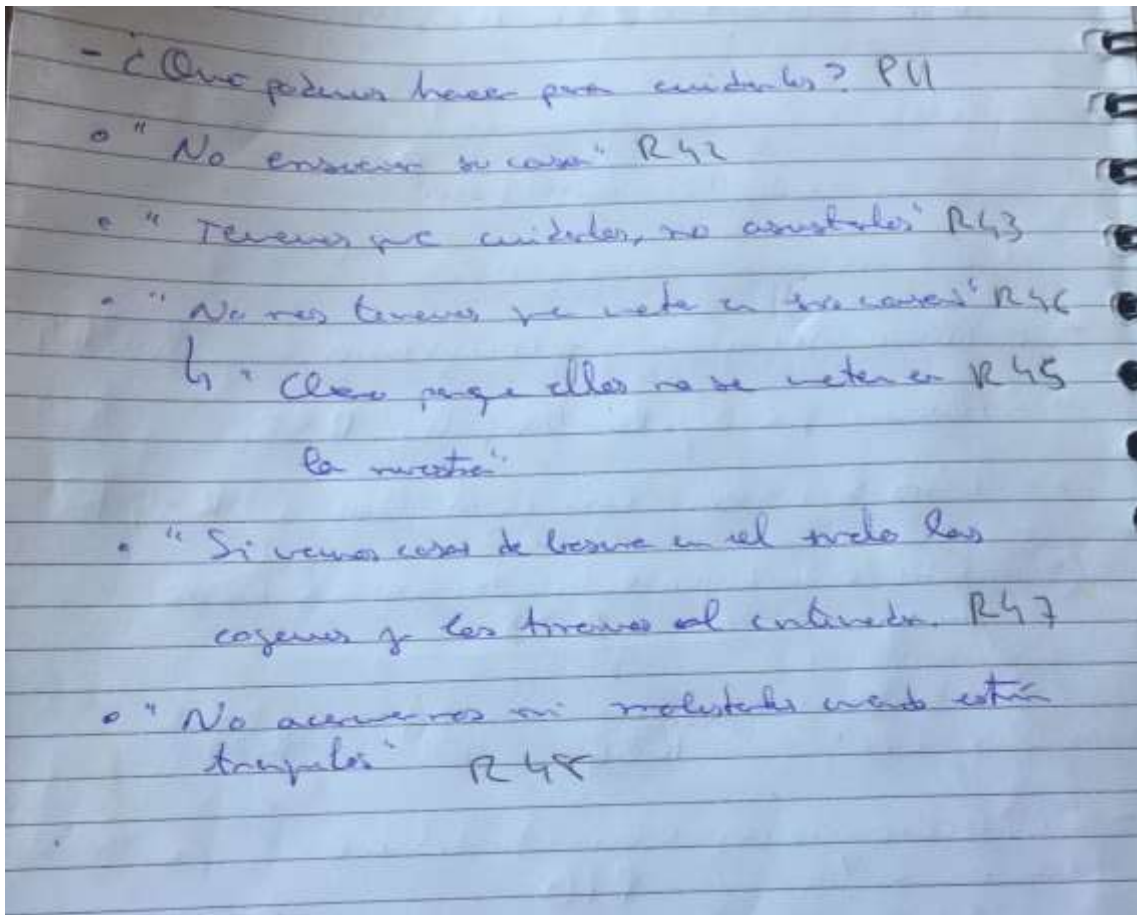 - ¿Que podemos hacer para cuidarlos? P11
• "No ensuciar su casa" R42
• "Tenemos que cuidarlos, no asustarlos" R43
• "No nos tenemos que meter en sus casas" R46
↳ "Claro porque ellos no se meten en R45
la nuestra"
• "Si vemos cosas de basura en el suelo las
cogemos y las tiramos al contenedor. R47
• "No acercarnos ni molestarles cuando están
tranquilos" R48